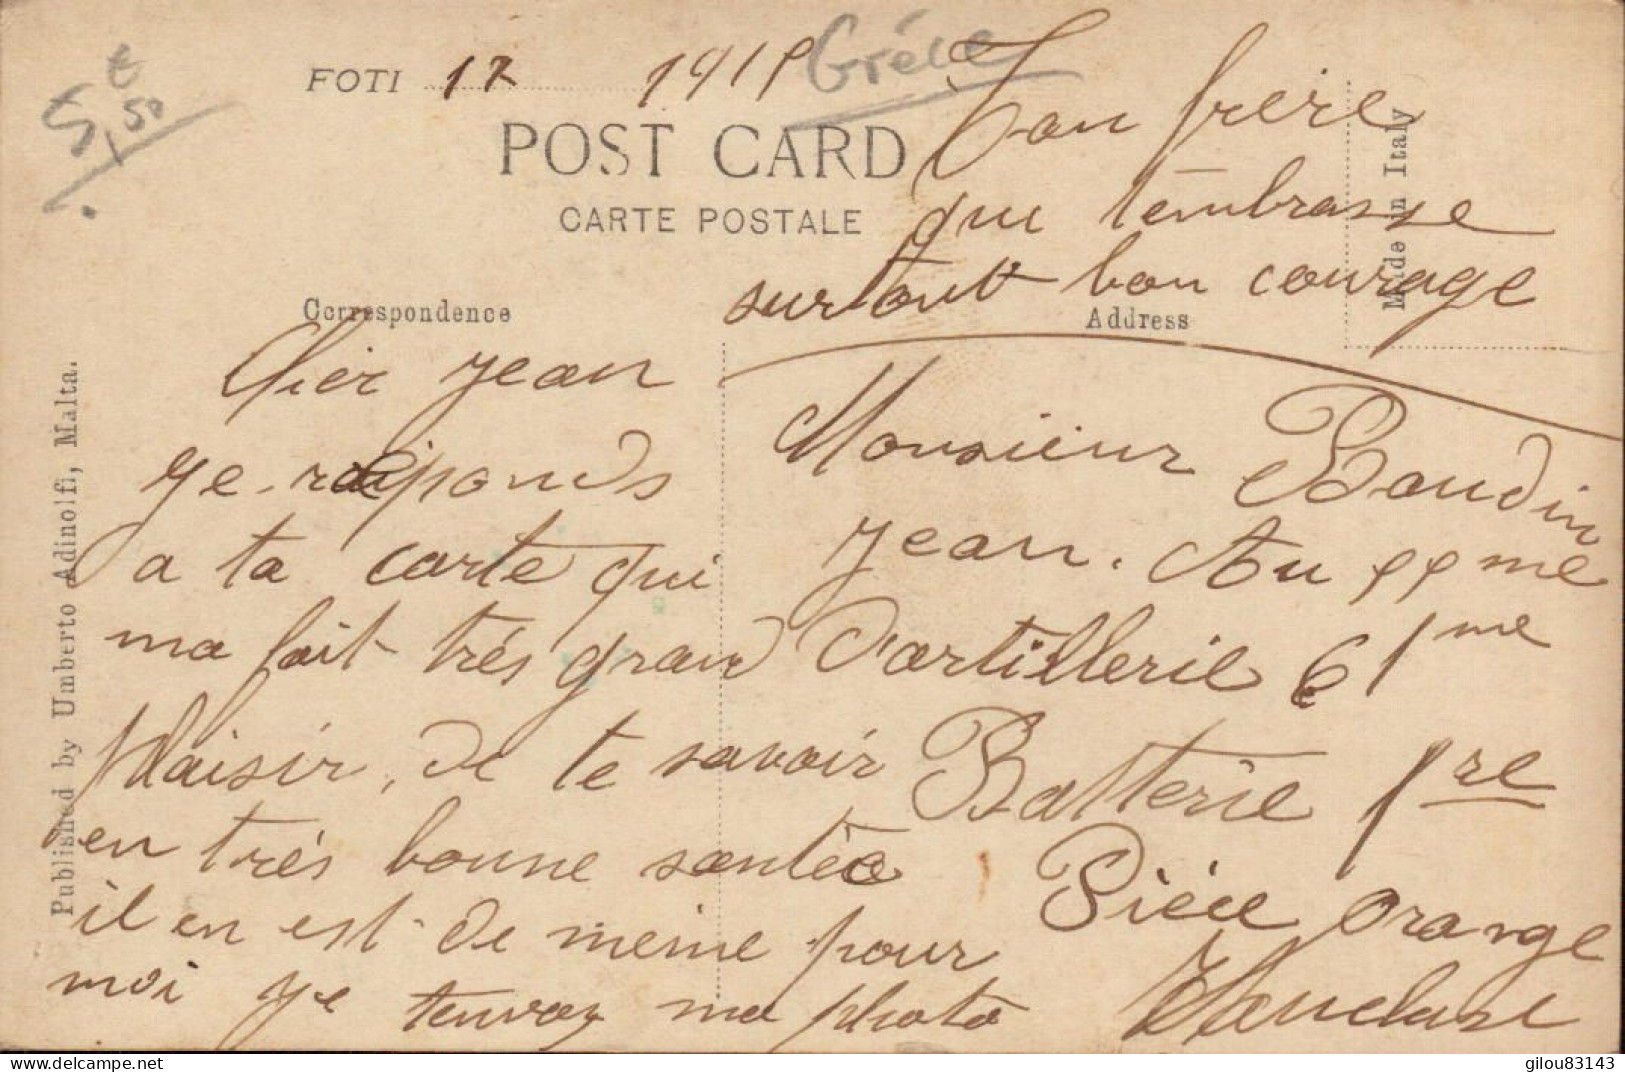 5€,50
FOTI 17 1918 Gréce
POST CARD
CARTE POSTALE
Ton frère
qui tembrasse
surtout bon courage
Made in Italy
Correspondence
Address
Cher Jean
Je réiponds
a ta carte qui
ma fait très grand
plaisir, de te savoir
en très bonne santée
il en est de même pour
moi je tenvoy ma photo
Monsieur Baudin
Jean. Au 55me
d'artillerie 61me
Batterie 1re
Pièce Orange
Vaucluse
Published by Umberto Adinolfi, Malta.
delcampe.net
gilou83143